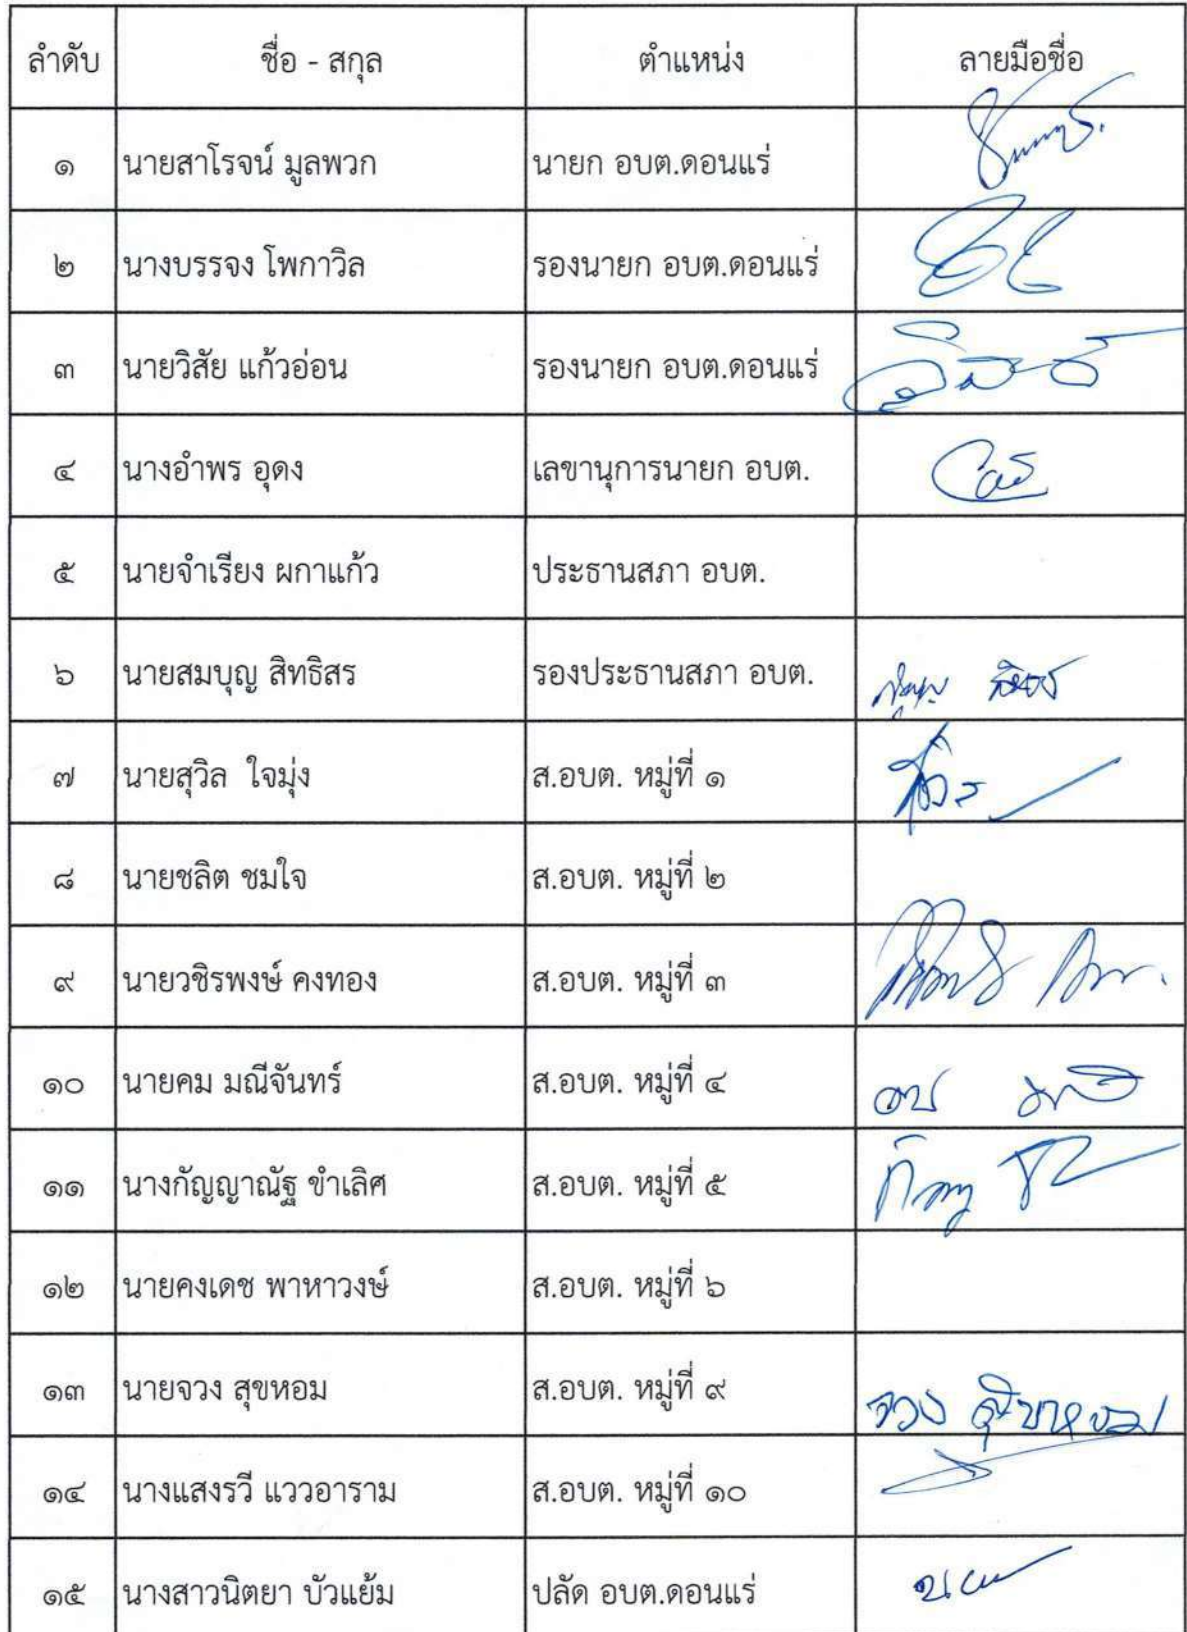 ลำดับ ชื่อ - สกุล ตำแหน่ง ลายมือชื่อ
๑ นายสาโรจน์ มูลพวก นายก อบต.ดอนแร่
๒ นางบรรจง โพกาวิล รองนายก อบต.ดอนแร่
๓ นายวิสัย แก้วอ่อน รองนายก อบต.ดอนแร่
๔ นางอำพร อุดง เลขานุการนายก อบต.
๕ นายจำเรียง ผกาแก้ว ประธานสภา อบต.
๖ นายสมบุญ สิทธิสร รองประธานสภา อบต.
๗ นายสุวิล ใจมุ่ง ส.อบต. หมู่ที่ ๑
๘ นายชลิต ชมใจ ส.อบต. หมู่ที่ ๒
๙ นายวชิรพงษ์ คงทอง ส.อบต. หมู่ที่ ๓
๑๐ นายคม มณีจันทร์ ส.อบต. หมู่ที่ ๔
๑๑ นางกัญญาณัฐ ขำเลิศ ส.อบต. หมู่ที่ ๕
๑๒ นายคงเดช พาหาวงษ์ ส.อบต. หมู่ที่ ๖
๑๓ นายจวง สุขหอม ส.อบต. หมู่ที่ ๙ จวง
๑๔ นางแสงรวี แววอาราม ส.อบต. หมู่ที่ ๑๐
๑๕ นางสาวนิตยา บัวแย้ม ปลัด อบต.ดอนแร่